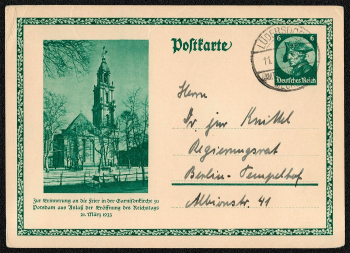 Postkarte
6 6
Deutsches Reich
Herrn
Dr jur Knittel
Regierungsrat
Berlin-Tempelhof
Albionstr. 41
Zur Erinnerung an die Feier in der Garnisonkirche zu
Potsdam aus Anlaß der Eröffnung des Reichstags
21. März 1933